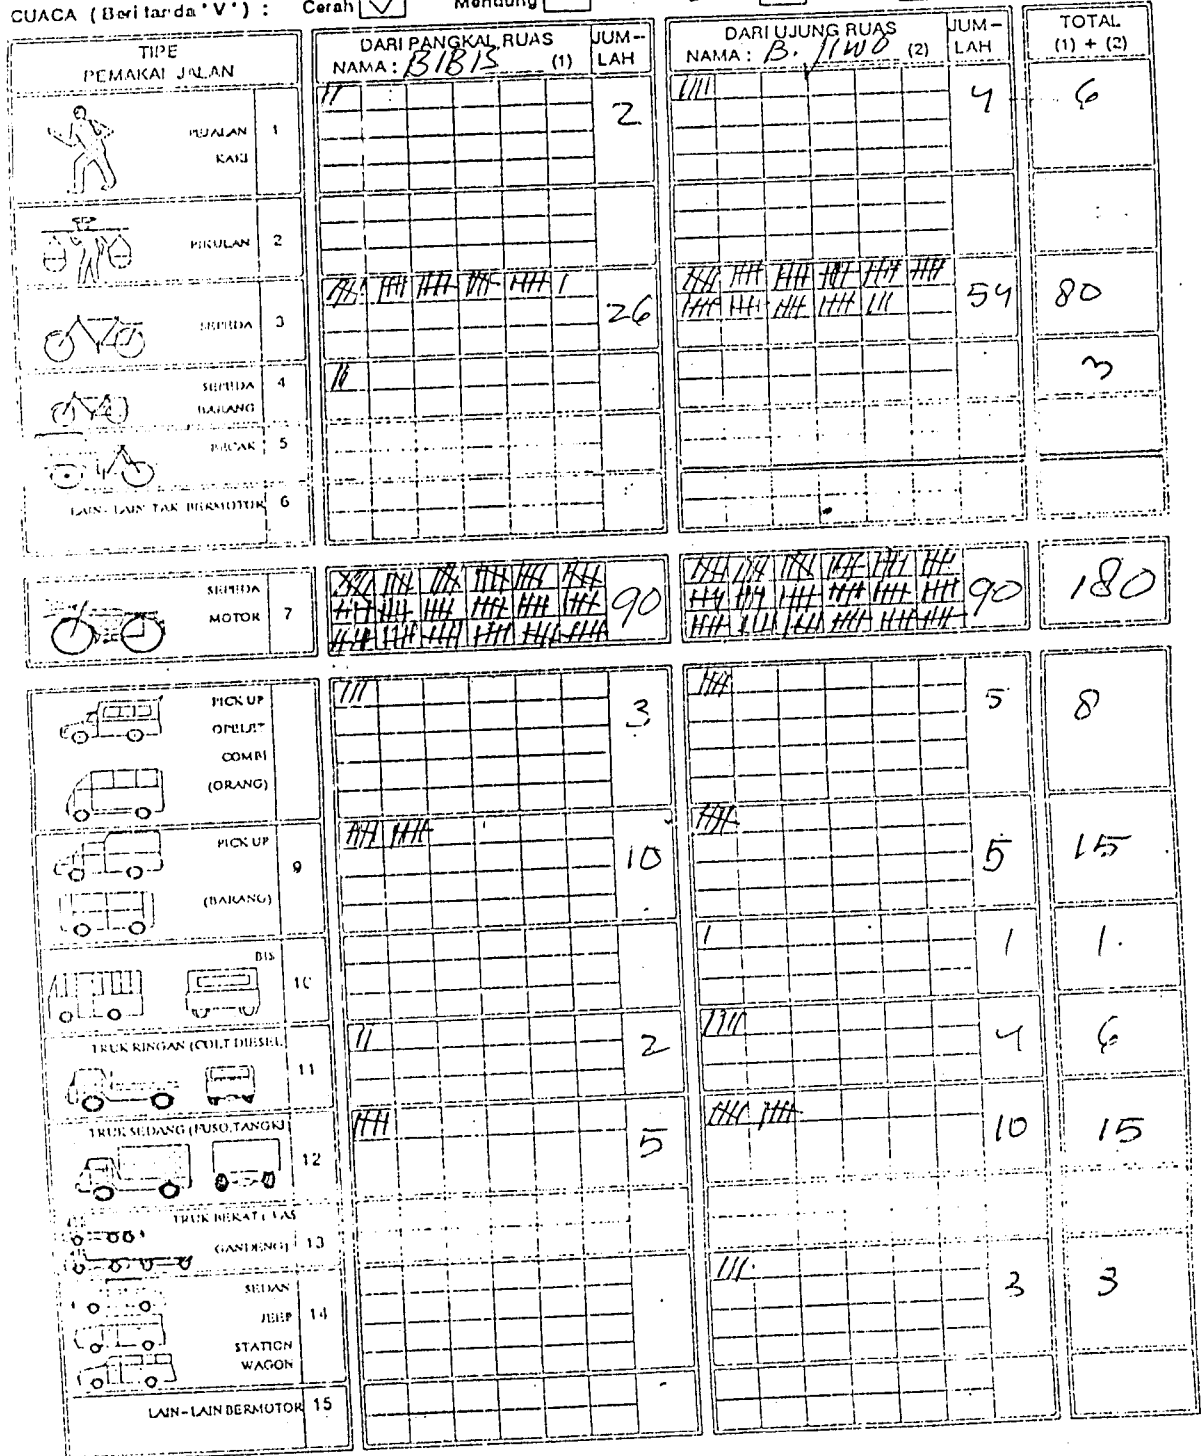 CUACA (Beri tanda 'V') : Cerah V Mendung
TIPE PEMAKAI JALAN
DARI PANGKAL RUAS NAMA : BIBIS (1)
JUM-LAH
DARI UJUNG RUAS NAMA : B. JIWO (2)
JUM-LAH
TOTAL (1) + (2)
PEJALAN KAKI 1 2 4 6
PIKULAN 2
SEPEDA 3 26 54 80
SEPEDA BARANG 4 3
BECAK 5
LAIN-LAIN TAK BERMOTOR 6
SEPEDA MOTOR 7 90 90 180
PICK UP OPELET COMBI (ORANG) 3 5 8
PICK UP (BARANG) 9 10 5 15
BIS 10 1 1
TRUK RINGAN (COLT DIESEL) 11 2 4 6
TRUK SEDANG (FUSO, TANGKI) 12 5 10 15
TRUK BERAT ( GANDENG) 13
SEDAN JEEP STATION WAGON 14 3 3
LAIN-LAIN BERMOTOR 15